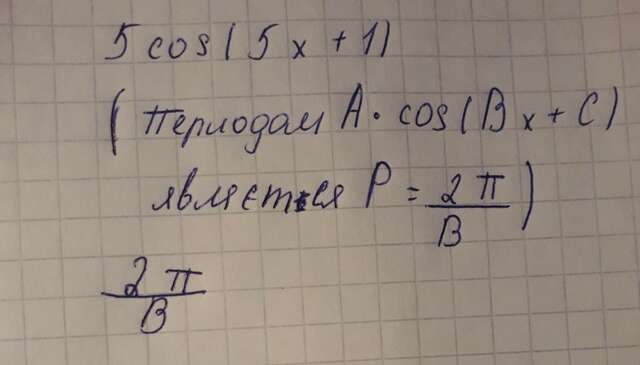 5 cos(5x + 1)
(периодом A · cos(Bx + C)
является P = 2π/B)
2π/B